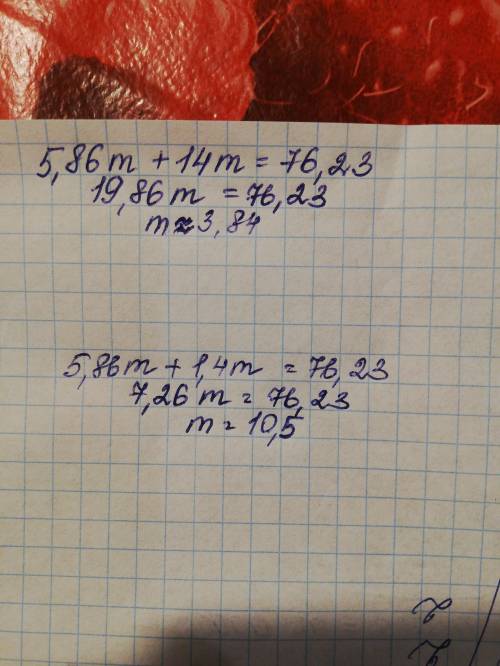 5,86m + 14m = 76,23
19,86m = 76,23
m≈3,84
5,86m + 1,4m = 76,23
7,26m = 76,23
m = 10,5